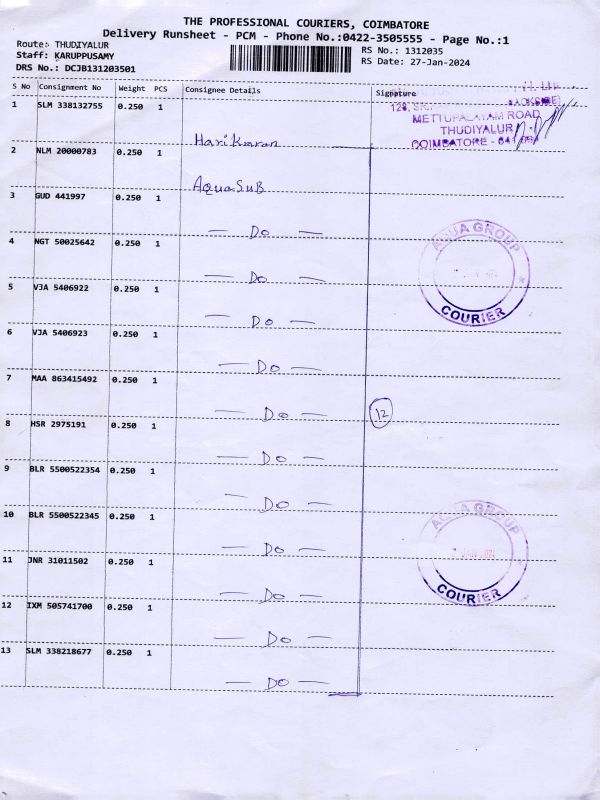 THE PROFESSIONAL COURIERS, COIMBATORE
Delivery Runsheet - PCM - Phone No.:0422-3505555 - Page No.:1
Route: THUDIYALUR
Staff: KARUPPUSAMY
DRS No.: DCJB131203501
RS No.: 1312035
RS Date: 27-Jan-2024
S No Consignment No Weight PCS Consignee Details Signature
1 SLM 338132755 0.250 1
METTUPALAYAM ROAD
THUDIYALUR
COIMBATORE - 641
Harikaran
2 NLM 20000783 0.250 1
AquaSuB
3 GUD 441997 0.250 1
— Do —
4 NGT 50025642 0.250 1
— Do —
5 VJA 5406922 0.250 1
— Do —
6 VJA 5406923 0.250 1
— Do —
7 MAA 863415492 0.250 1
— Do —
8 HSR 2975191 0.250 1
— Do —
9 BLR 5500522354 0.250 1
— Do —
10 BLR 5500522345 0.250 1
— Do —
11 JNR 31011502 0.250 1
— Do —
12 IXM 505741700 0.250 1
— Do —
13 SLM 338218677 0.250 1
— Do —
AQUA GROUP
COURIER
12
AQUA GROUP
COURIER